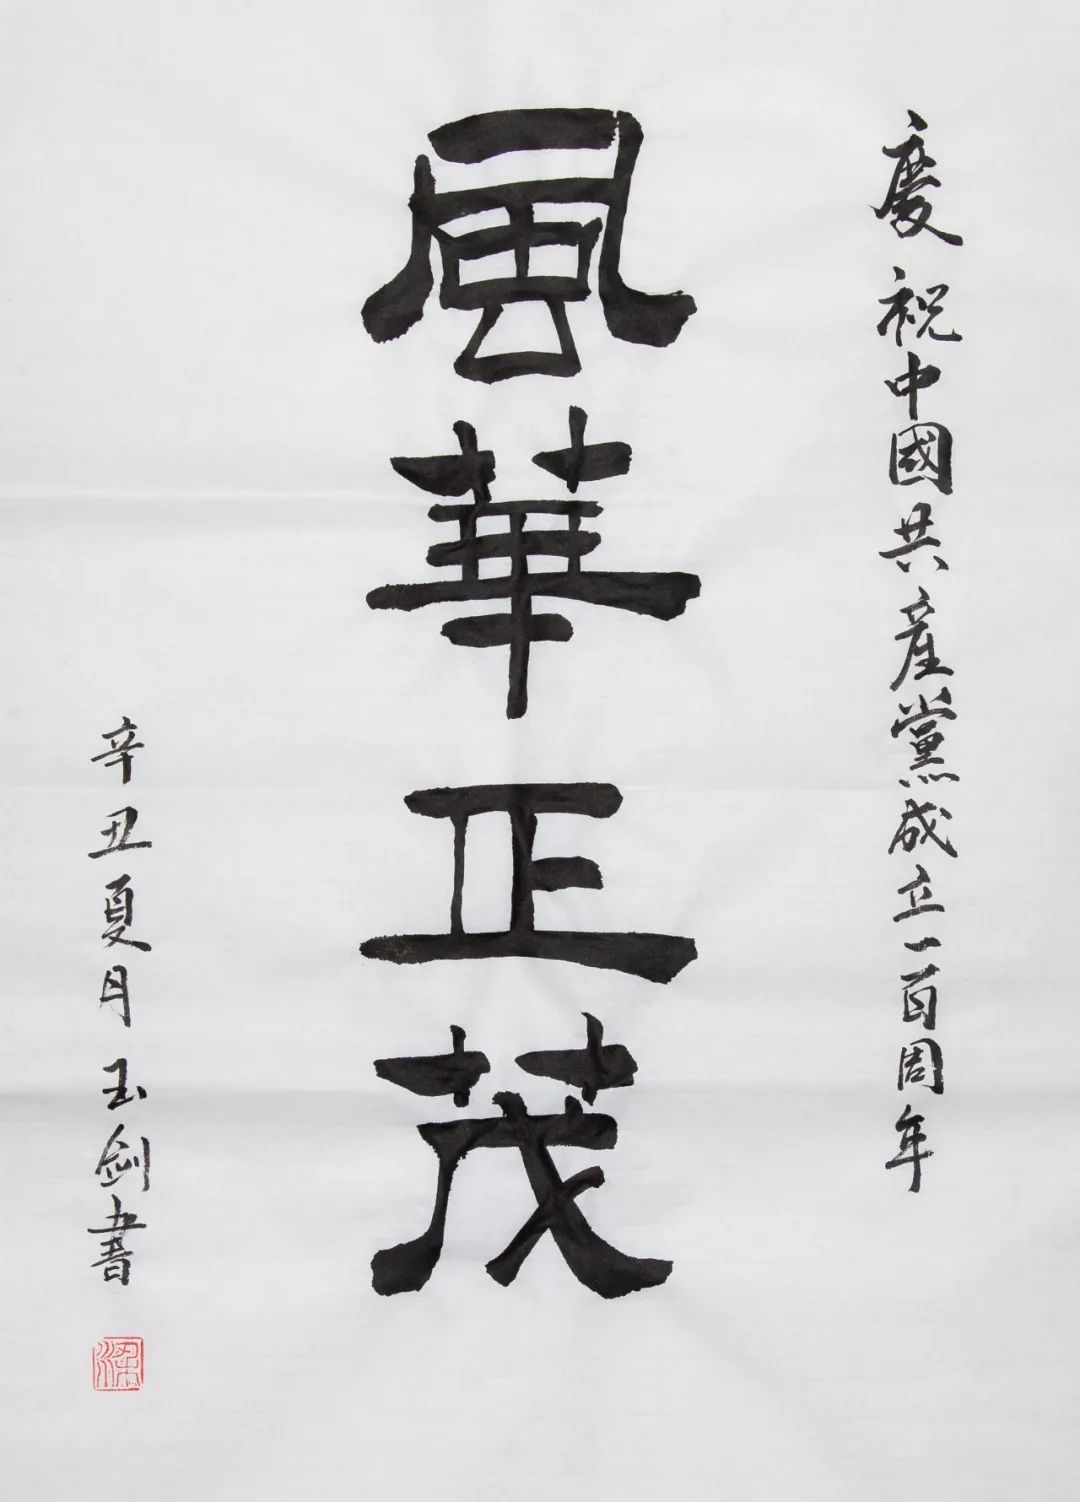 慶祝中國共産黨成立一百周年
風華正茂
辛丑夏月玉剑書